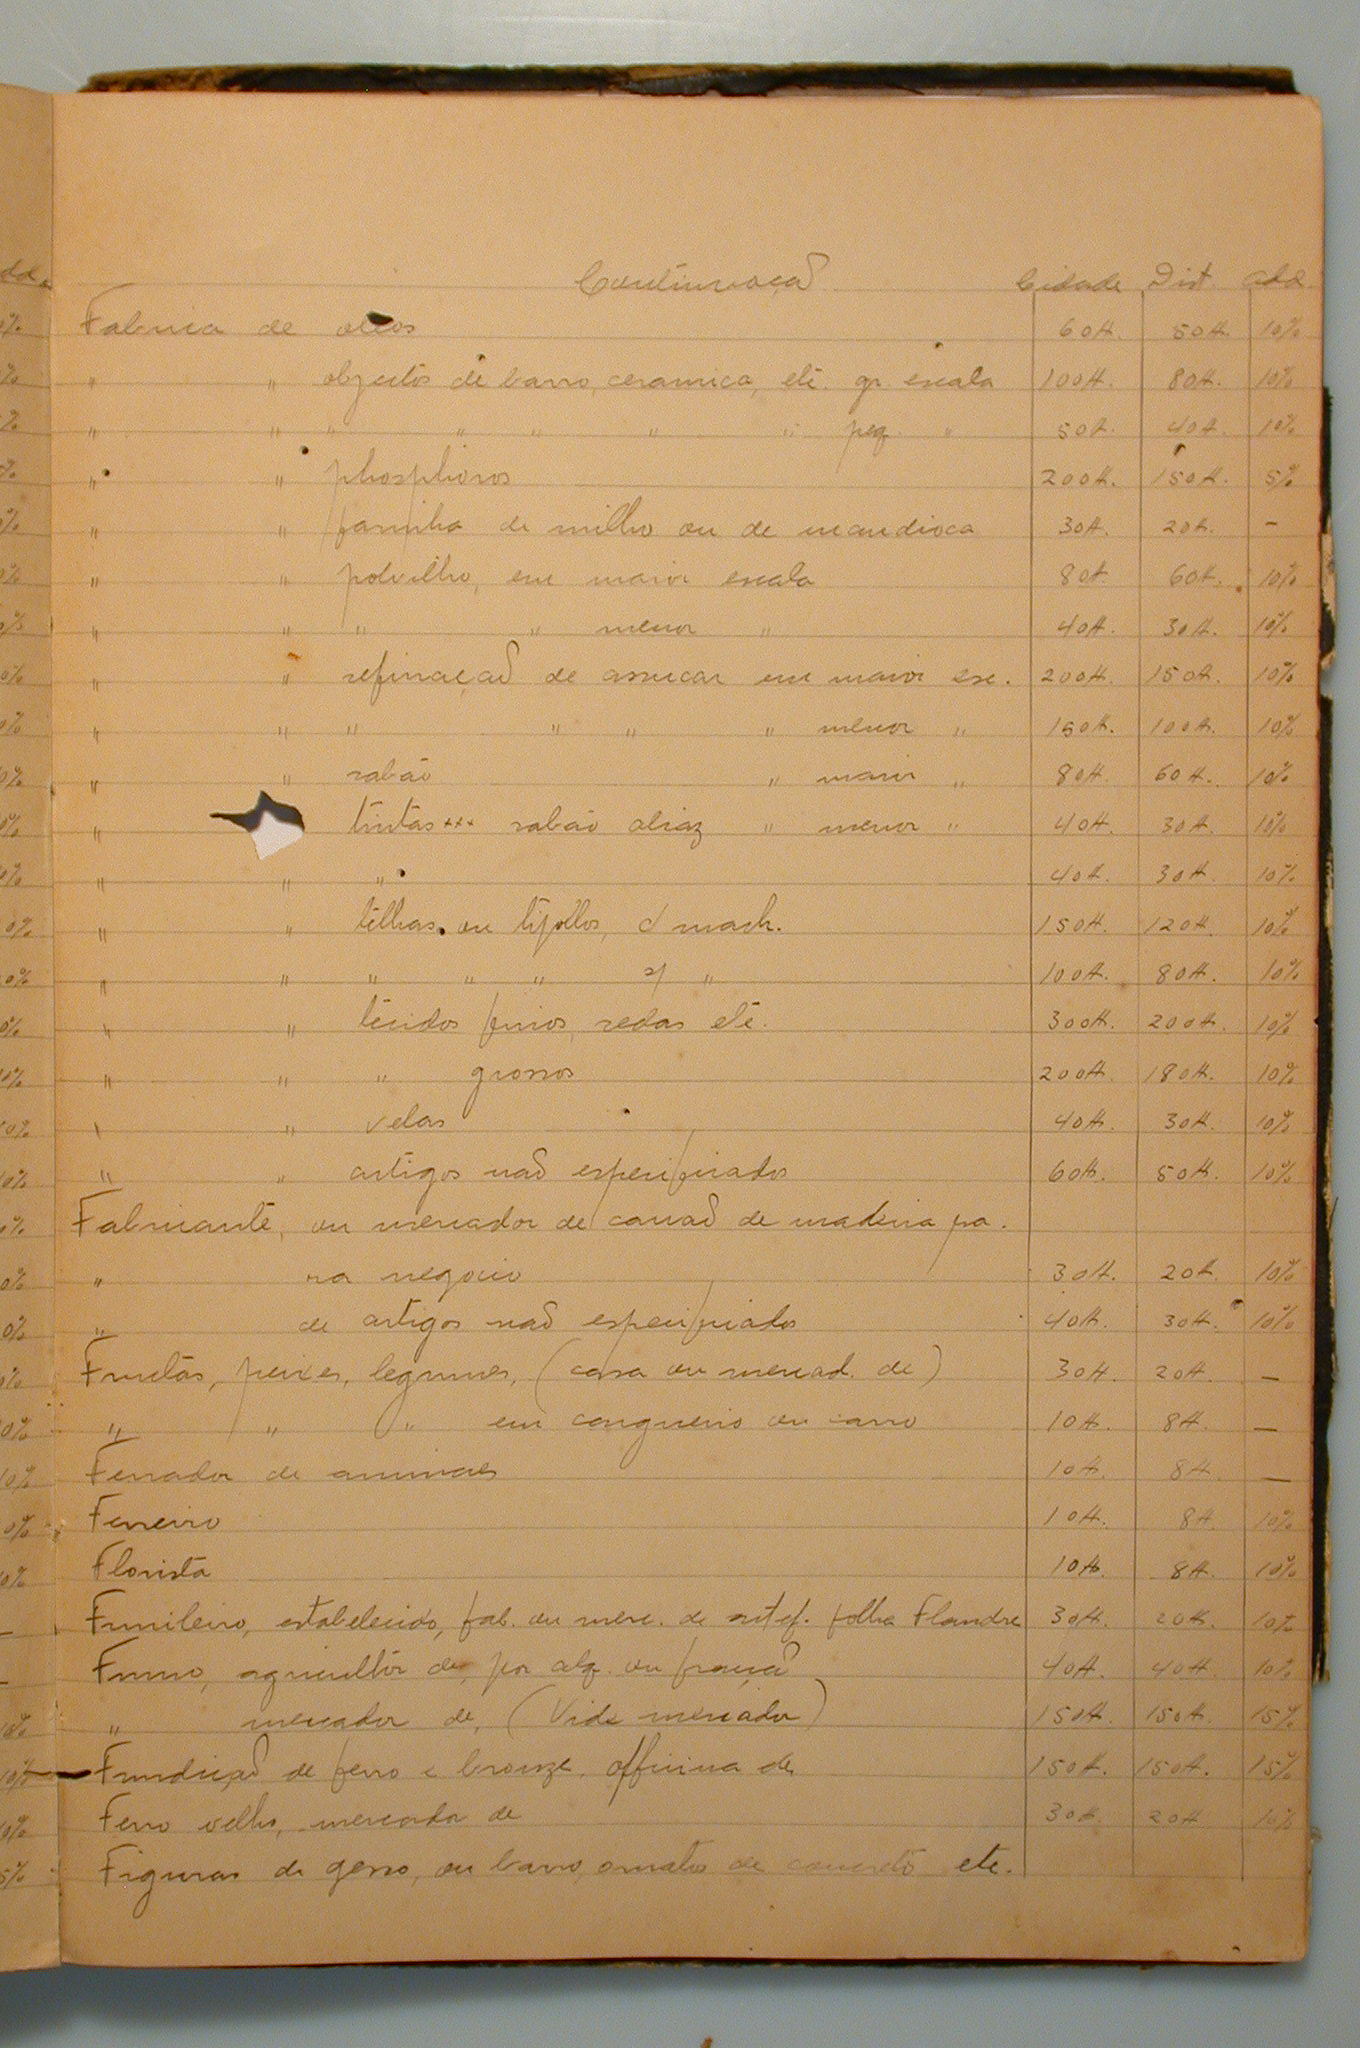 Continuação Cidade Dist. Add.
Fabrica de oleos 60$. 50$. 10%
" " objectos de barro, ceramica, etc. gr. escala 100$. 80$. 10%
" " " " " " " peq. " 50$. 40$. 10%
" " phosphoros 200$. 150$. 5%
" " farinha de milho ou de mandioca 30$. 20$. -
" " polvilho, em maior escala 80$ 60$. 10%
" " " " menor " 40$. 30$. 10%
" " refinação de assucar em maior esc. 200$. 150$. 10%
" " " " " " menor " 150$. 100$. 10%
" " sabão " maior " 80$. 60$. 10%
" tintas *** sabão aliaz " menor " 40$. 30$. 10%
" " " 40$. 30$. 10%
" " telhas ou tijollos, c/ mach. 150$. 120$. 10%
" " " " " s/ " 100$. 80$. 10%
" " tecidos finos, sedas etc. 300$. 200$. 10%
" " " grossos 200$. 180$. 10%
" " velas 40$. 30$. 10%
" " artigos não especificados 60$. 50$. 10%
Fabricante, ou mercador de de madeira pa.
" ra negocio 30$. 20$. 10%
" de artigos não especificados 40$. 30$. 10%
Fructas, peixes, legumes, (casa ou mercad. de) 30$. 20$. —
" " " em cargueiro ou carro 10$. 8$. —
Ferrador de animaes 10$. 8$. —
Ferreiro 10$. 8$. 10%
Florista 10$. 8$. 10%
Funileiro, estabelecido, fab. ou merc. de artef. folha Flandre 30$. 20$. 10%
Fumo, agricultor de, por alq. ou fração 40$. 40$. 10%
" mercador de, (Vide mercador) 150$. 150$. 15%
Fundição de ferro e bronze, officina de 150$. 150$. 15%
Ferro velho, mercador de 30$. 20$ 10%
Figuras de gesso, ou barro, ornatos de concreto etc.